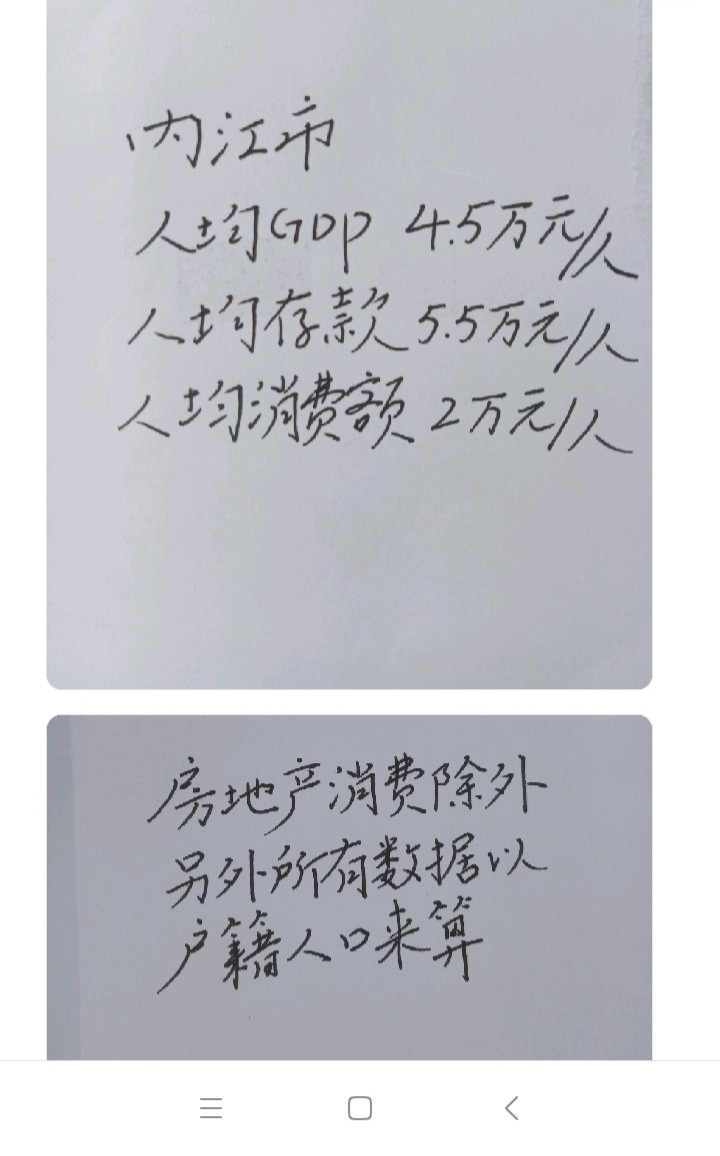 内江市
人均GDP 4.5万元/人
人均存款 5.5万元/人
人均消费额 2万元/人
房地产消费除外
另外所有数据以
户籍人口来算